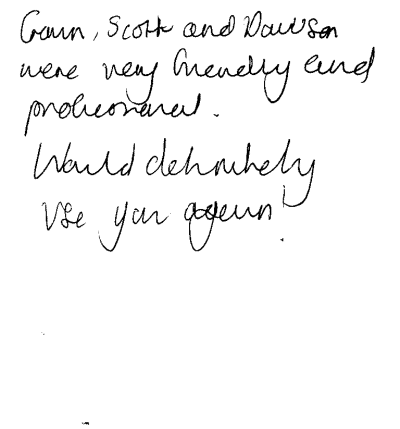 Gavin, Scott and Davison
were very friendly and
professional.
Would definitely
use you again!